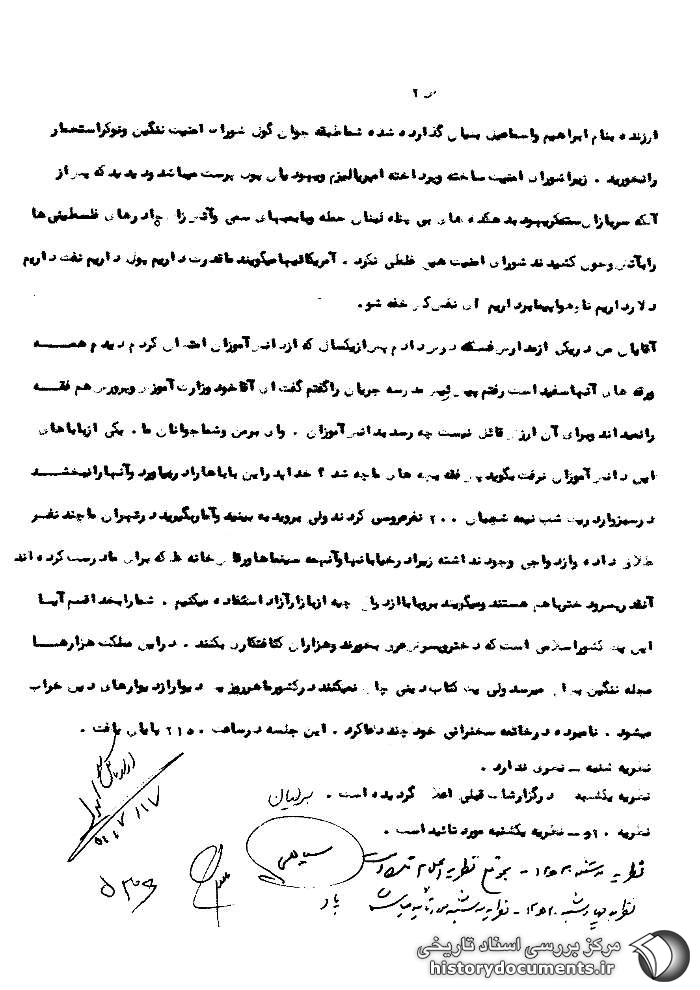 ص ۲
ارزنده بنام ابراهیم واسماعیل بنیان گذارده شده شما طبقه جوان گول شورای امنیت ننگین ونوکر استعمار
را نخورید . زیرا شورای امنیت ساخته وپرداخته امپریالیزم ویهودیان پول پرست میباشد ودیدید که پس از
آنکه سربازان ستمگر یهود بدهکده های بی پناه لبنان حمله وبا بمبهای سمی وآتش زا چادرهای فلسطینی ها
را بآتش وخون کشیدند شورای امنیت هیچ غلطی نکرد . آمریکائیها میگویند ما قدرت داریم پول داریم نفت داریم
دلار داریم ناو هواپیمابر داریم ای نفس کش خفه شو .
آقایان من در یکی از مدارس فسکه درس دادم پس از یکسالی که از دانش آموزان امتحان کردم دیدم همـه
ورقه های آنها سفید است رفتم پیش رئیس مدرسه جریان را گفتم گفت ای آقا خود وزارت آموزش وپرورش هم فقـه
را نمیداند وبرای آن ارزش قائل نیست چه رسد بدانش آموزان . وای برمن وشما جوانان ما . یکی از باباهای
این دانش آموزان نرفت بگوید پس فقه بچه های ما چه شد ؟ خدا پدر این باباها را در بیاورد وآنها را نبخشـد
در سبزوار در یک شب نیمه شعبان ۲۰۰ نفر عروسی کردند ولی بروید به بینید وآمار بگیرید در تهران ما چند نفـر
طلاق داده وازدواجی وجود نداشته زیرا در خیابانها وآنهمه سینماها ورقاص خانه ها که برای ما درست کرده اند
آنقدر پسر ودختر باهم هستند ومیگویند بروبابا ازدواج چیه از بازار آزاد استفاده میکنیم . شما را بخدا قسم آیـا
این یک کشور اسلامی است که دختر وپسر عرق بخورند وهزاران کثافتکاری بکنند . در این مملکت هزارهـا
مجله ننگین بچاپ میرسد ولی یک کتاب دینی چاپ نمیکنند در کشور ما هر روز یک دیوار از دیوارهای دین خراب
میشود . نامبرده در خاتمه سخنرانی خود چند دعا کرد . این جلسه در ساعت ۲۱۵۰ پایان یافت .
نظریه شنبه ـ نظری ندارد .
نظریه یکشنبه در گزارشات قبلی اعلام گردیده است .
نظریه ۲۰ و ـ نظریه یکشنبه مورد تائید است .
نظریه سه شنبه ۲۰ ه ۱۲ -
نظریه چهارشنبه ۲۰ ه ۱۲ - نظریه سه شنبه مورد تائید میباشد
مرکز بررسی اسناد تاریخی
historydocuments.ir